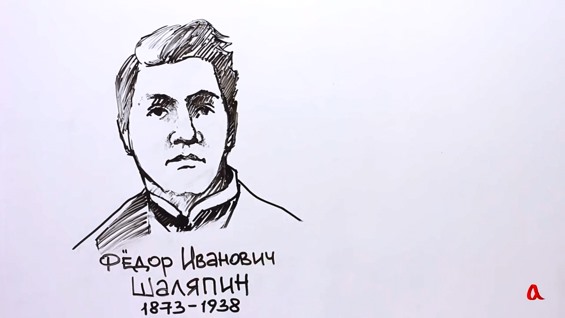 Фёдор Иванович
Шаляпин
1873-1938
a